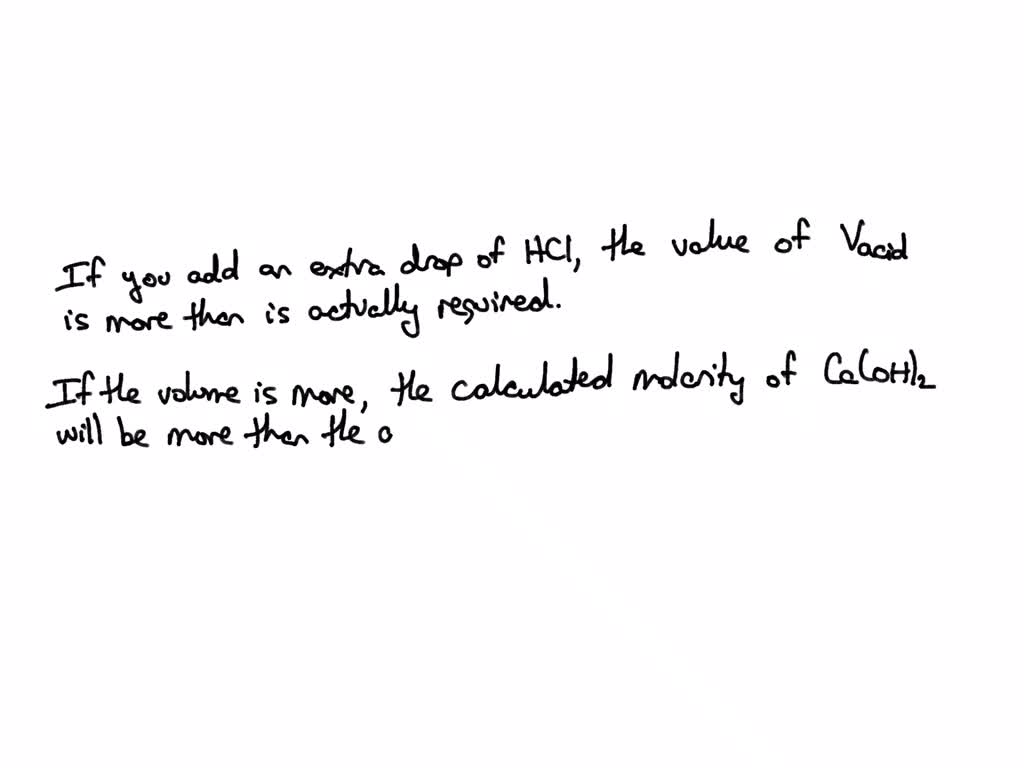 If you add an extra drop of HCl, the value of Vacid
is more than is actually required.
If the volume is more, the calculated molarity of Ca(OH)2
will be more than the a